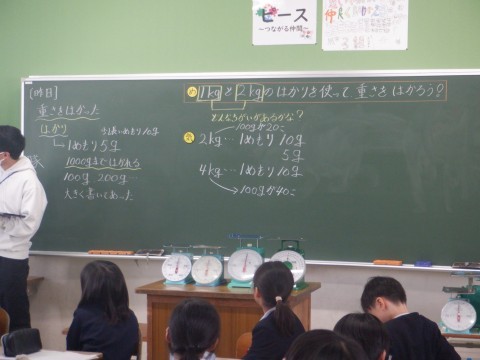 ピース
〜つながる仲間〜
[昨日]
重さをはかった
はかり
少し長い めもり 10g
→1めもり 5g
1000gまではかれる
100g 200g…
大きく書いてあった
め 1kgと2kgのはかりを使って重さをはかろう?
どんなちがいがあるかな?
100gが20こ
2kg…1めもり 10g
5g
4kg…1めもり 10g
→100gが40こ